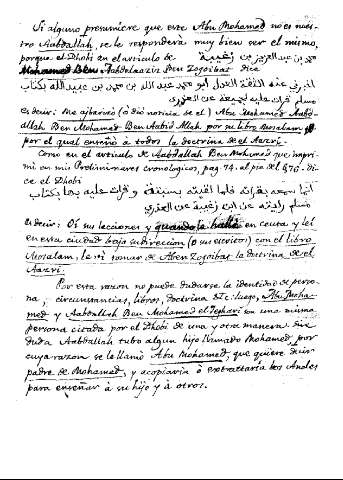 Si alguno presumiere que este Abu Mohamed no es nues-
tro Aabdallah, se le responderá muy bien ser el mismo,
porque el Dhobi en el articulo de محمد بن عبد العزيز بن زغيبة
Mohamed Ben Aabdelaaziz Ben Zogoibat dice
اخبرني عنه الثقة العدل ابو محمد عبد الله بن محمد بن عبيد الله بكتاب
مسلم قراته عليه بجميعه عن العذري
es decir: Me ajbaró (ó dió noticia de el) Abu Mohamed Aabd-
allah Ben Mohamed Ben Aabid Allah por su libro Mosalam
por el qual enseñó à todos la doctrina de el Aazri.
Como en el articulo de Aabdallah Ben Mohamad que impri-
mi en mis Preliminares cronologicos, pag. 74. al pie del 676. di-
ce el Dhobi
مسلم عن ابن زغيبة عن العذري
es decir: Oí sus lecciones y quando le hallé en ceuta y leí
en esta ciudad baja su direccion (o sus escritos) con el libro
Mosalam, le vi tomar de Aben Zogoibat la doctrina de el
Aazri.
Por esta razon no puede dudarse la identidad de perso-
na, circunstancias, libros, doctrina &c: luego, Abu Moha-
med y Aabdallah Ben Mohamed el son una misma
persona citada por el Dhobi de una y otra manera. Sin
duda Aabdallah tubo algun hijo llamado Mohamed, por
cuya razon se le llamó Abu Mohamed, que quiere decir
padre de Mohamed, y acopiaria ò extractaria los Anales
para enseñar à su hijo y à otros.